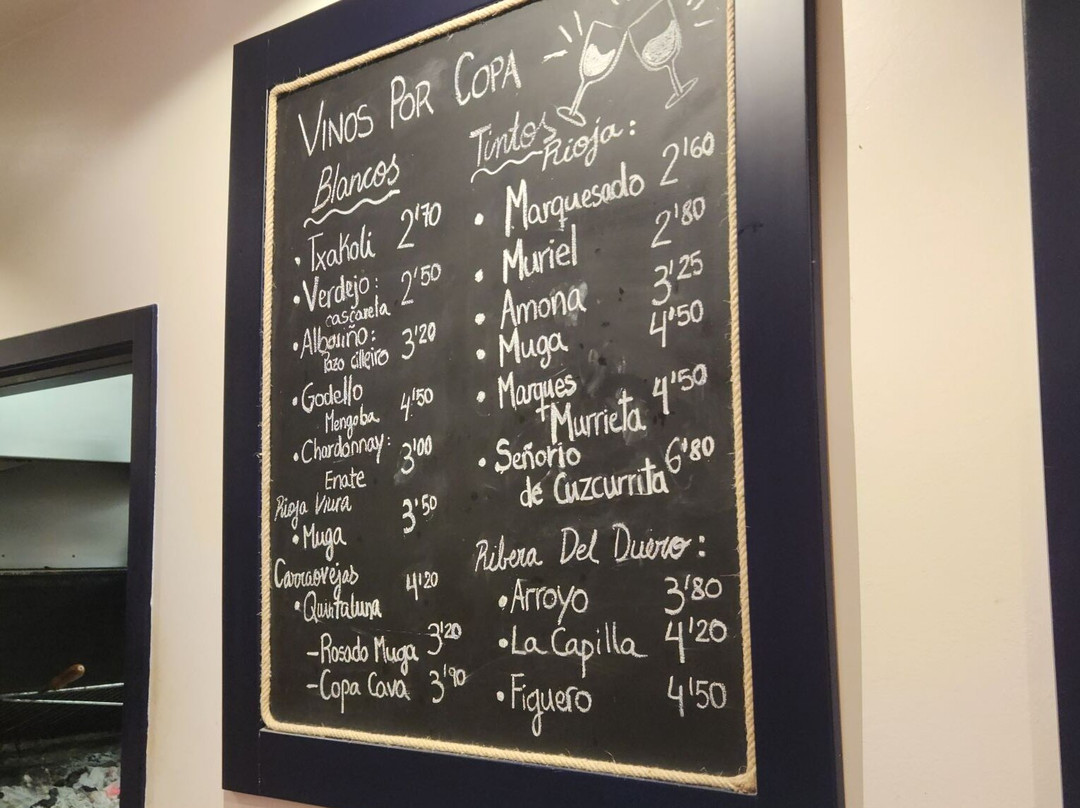 VINOS POR COPA
Blancos
• Txakoli 2'70
• Verdejo: 2'50
cascarela
• Albariño: 3'20
Pazo cilleiro
• Godello
Mengoba 4'50
• Chardonnay: 3'00
Enate
Rioja Viura 3'50
• Muga
Carraovejas 4'20
• Quintaluna
- Rosado Muga 3'20
- Copa Cava 3'90
Tintos
Rioja:
• Marquesado 2'60
• Muriel 2'80
• Amona 3'25
• Muga 4'50
• Marques 4'50
Murrieta
• Señorio 6'80
de Cuzcurrita
Ribera Del Duero:
• Arroyo 3'80
• La Capilla 4'20
• Figuero 4'50